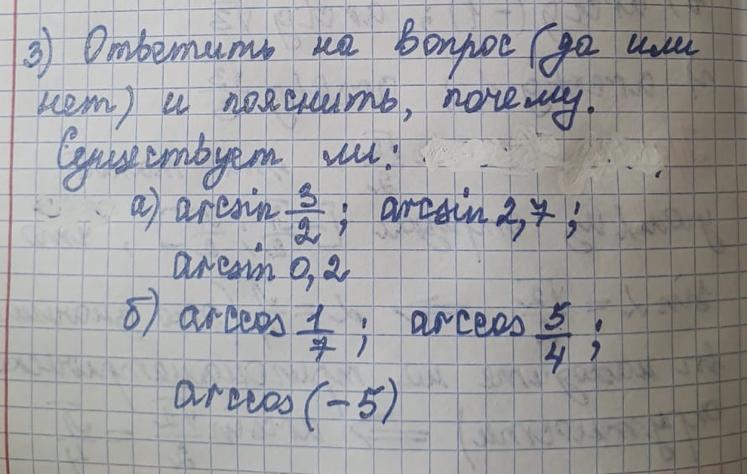 3) Ответить на вопрос (да или
нет) и пояснить, почему.
Существует ли:
а) arcsin 3/2; arcsin 2,7;
arcsin 0,2
б) arccos 1/7; arccos 5/4;
arccos (-5)